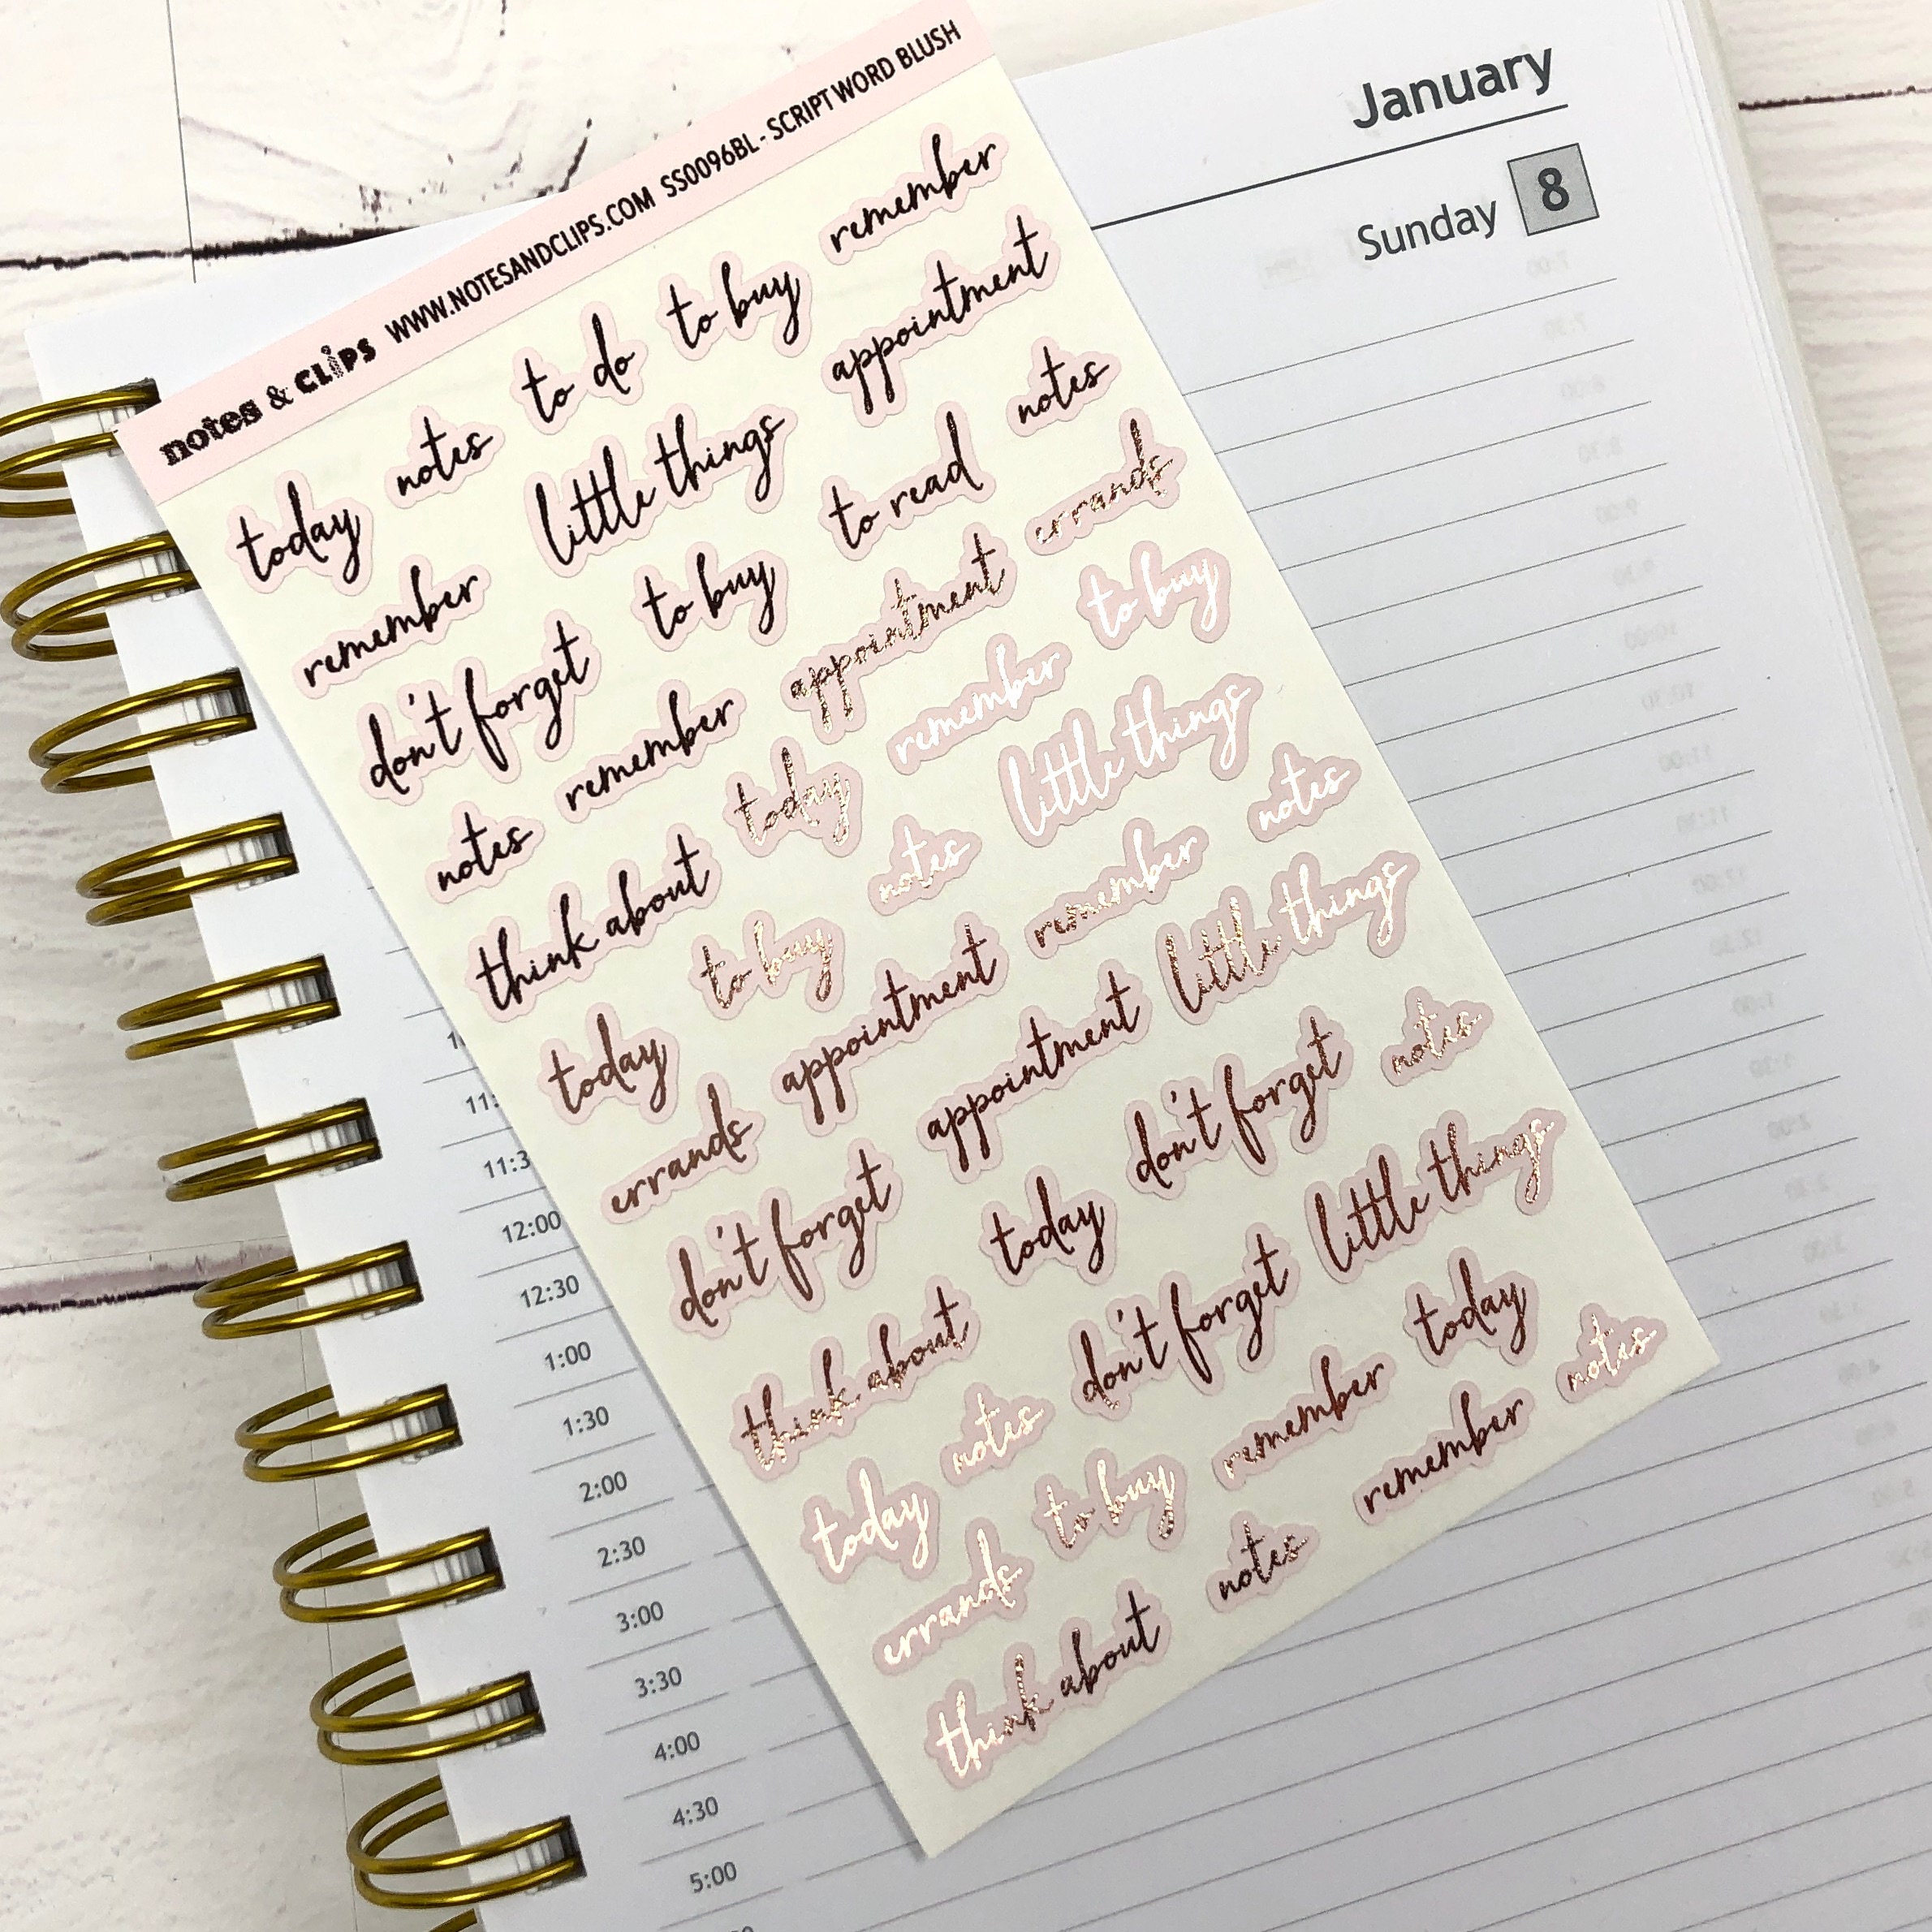 January
Sunday 8
notes & clips WWW.NOTESANDCLIPS.COM SS0096BL - SCRIPT WORD BLUSH
today notes to do to buy remember
remember little things appointment
don't forget to buy to read notes
notes remember appointment errands
think about today remember to buy
today to buy notes little things
errands appointment remember notes
don't forget appointment little things
think about today don't forget notes
today notes don't forget little things
errands to buy remember today
think about notes remember notes
12:00
12:30
1:00
1:30
2:00
2:30
3:00
3:30
4:00
4:30
5:00